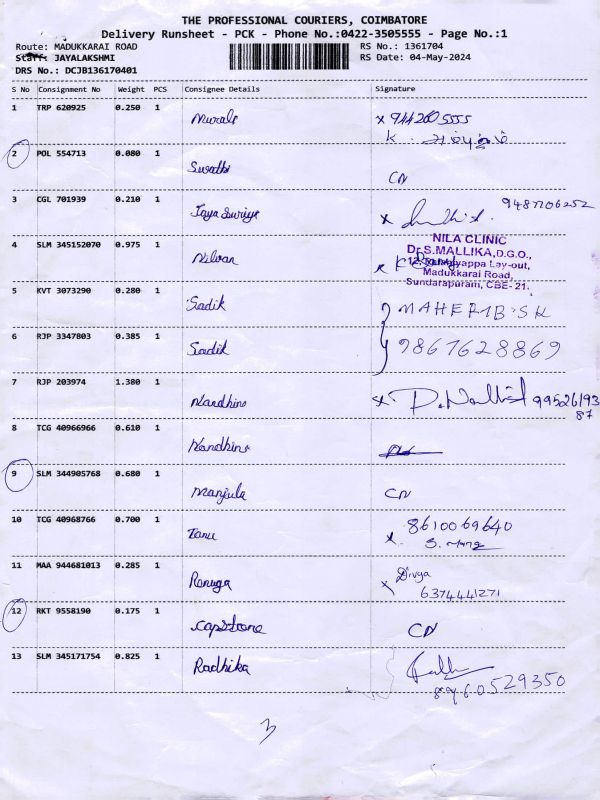 THE PROFESSIONAL COURIERS, COIMBATORE
Delivery Runsheet - PCK - Phone No.:0422-3505555 - Page No.:1
Route: MADUKKARAI ROAD RS No.: 1361704
Staff: JAYALAKSHMI RS Date: 04-May-2024
DRS No.: DCJB136170401
S No Consignment No Weight PCS Consignee Details Signature
1 TRP 620925 0.250 1 Murali x
K.
2 POL 554713 0.080 1 Swathi CN
3 CGL 701939 0.210 1 Jaya Suriya x 9487206252
NILA CLINIC
Dr.S.MALLIKA,D.G.O.,
4 SLM 345152070 0.975 1 x K Lay-out,
Madukkarai Road,
Sundarapuram, CBE- 21.
5 KVT 3073290 0.280 1 Sadik
6 RJP 3347803 0.385 1 Sadik 9867628869
7 RJP 203974 1.380 1 Nandhini x 99526193
87
8 TCG 40966966 0.610 1 Nandhini
9 SLM 344905768 0.680 1 Manjula CN
10 TCG 40968766 0.700 1 Tanu x 8610069640
11 MAA 944681013 0.285 1 Renuga x Divya
6374441271
12 RKT 9558190 0.175 1 Capstone CN
13 SLM 345171754 0.825 1 Radhika
8960529350
3